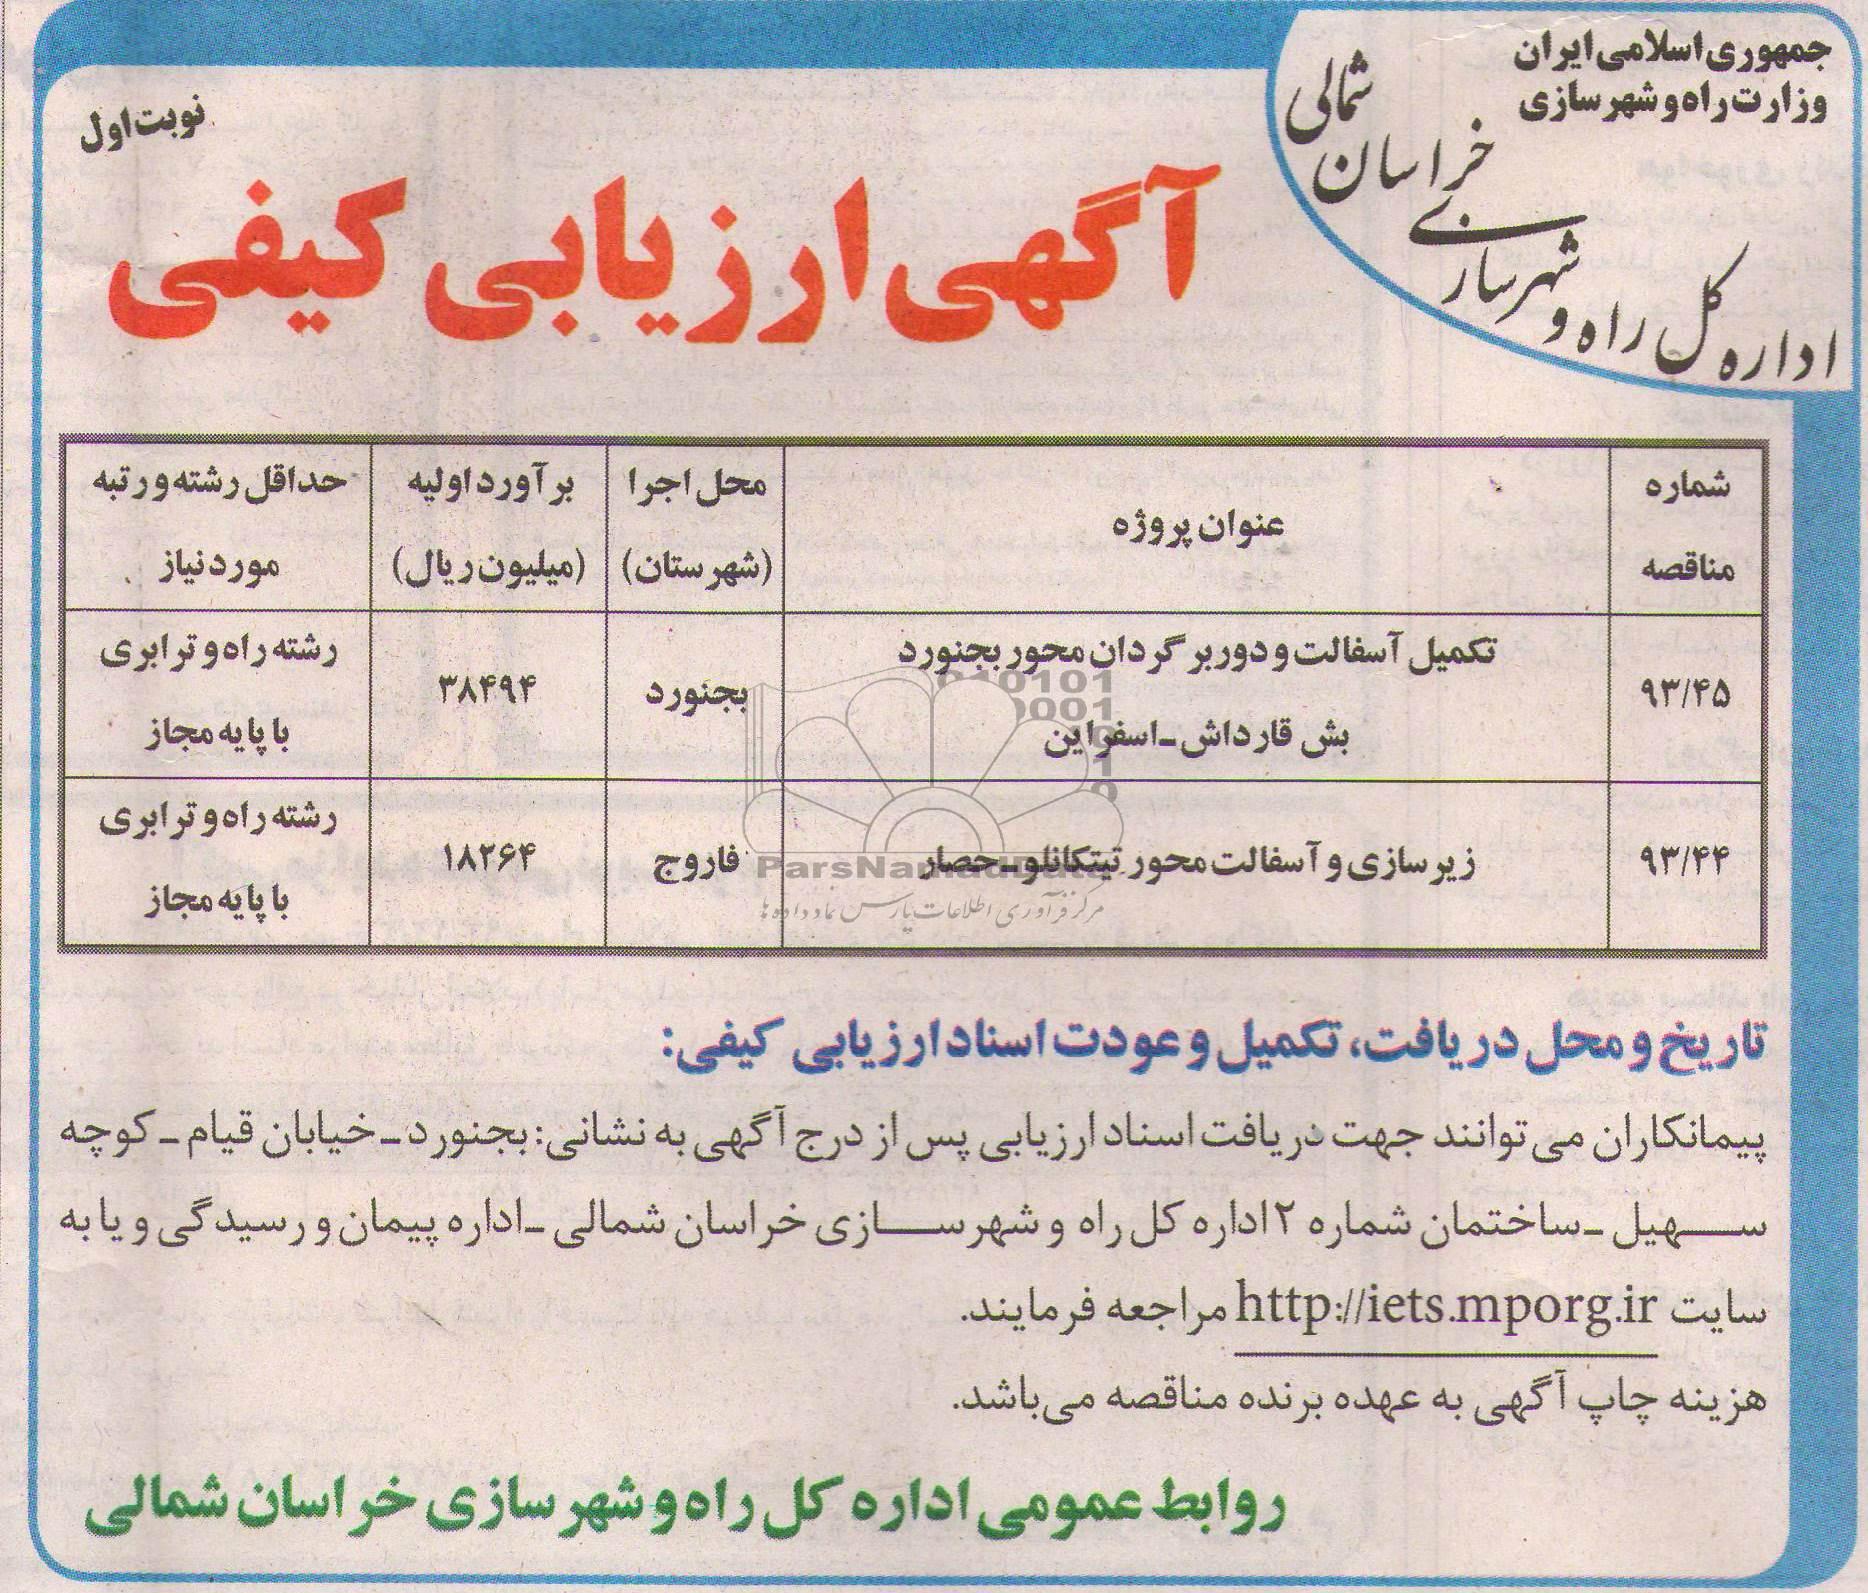 جمهوری اسلامی ایران
وزارت راه و شهرسازی
اداره کل راه و شهرسازی خراسان شمالی
نوبت اول
آگهی ارزیابی کیفی
شماره مناقصه
عنوان پروژه
محل اجرا (شهرستان)
برآورد اولیه (میلیون ریال)
حداقل رشته و رتبه مورد نیاز
۹۳/۴۵
تکمیل آسفالت و دوربرگردان محور بجنورد
بش قارداش ـ اسفراین
بجنورد
۳۸۴۹۴
رشته راه و ترابری
با پایه مجاز
۹۳/۴۴
زیرسازی و آسفالت محور تیتکانلو ـ حصار
فاروج
۱۸۲۶۴
رشته راه و ترابری
با پایه مجاز
ParsNamadData
مرکز فرآوری اطلاعات پارس نماد داده ها
تاریخ و محل دریافت، تکمیل و عودت اسناد ارزیابی کیفی:
پیمانکاران می‌توانند جهت دریافت اسناد ارزیابی پس از درج آگهی به نشانی: بجنورد ـ خیابان قیام ـ کوچه
سهیل ـ ساختمان شماره ۲ اداره کل راه و شهرسازی خراسان شمالی ـ اداره پیمان و رسیدگی و یا به
سایت http://iets.mporg.ir مراجعه فرمایند.
هزینه چاپ آگهی به عهده برنده مناقصه می‌باشد.
روابط عمومی اداره کل راه و شهرسازی خراسان شمالی